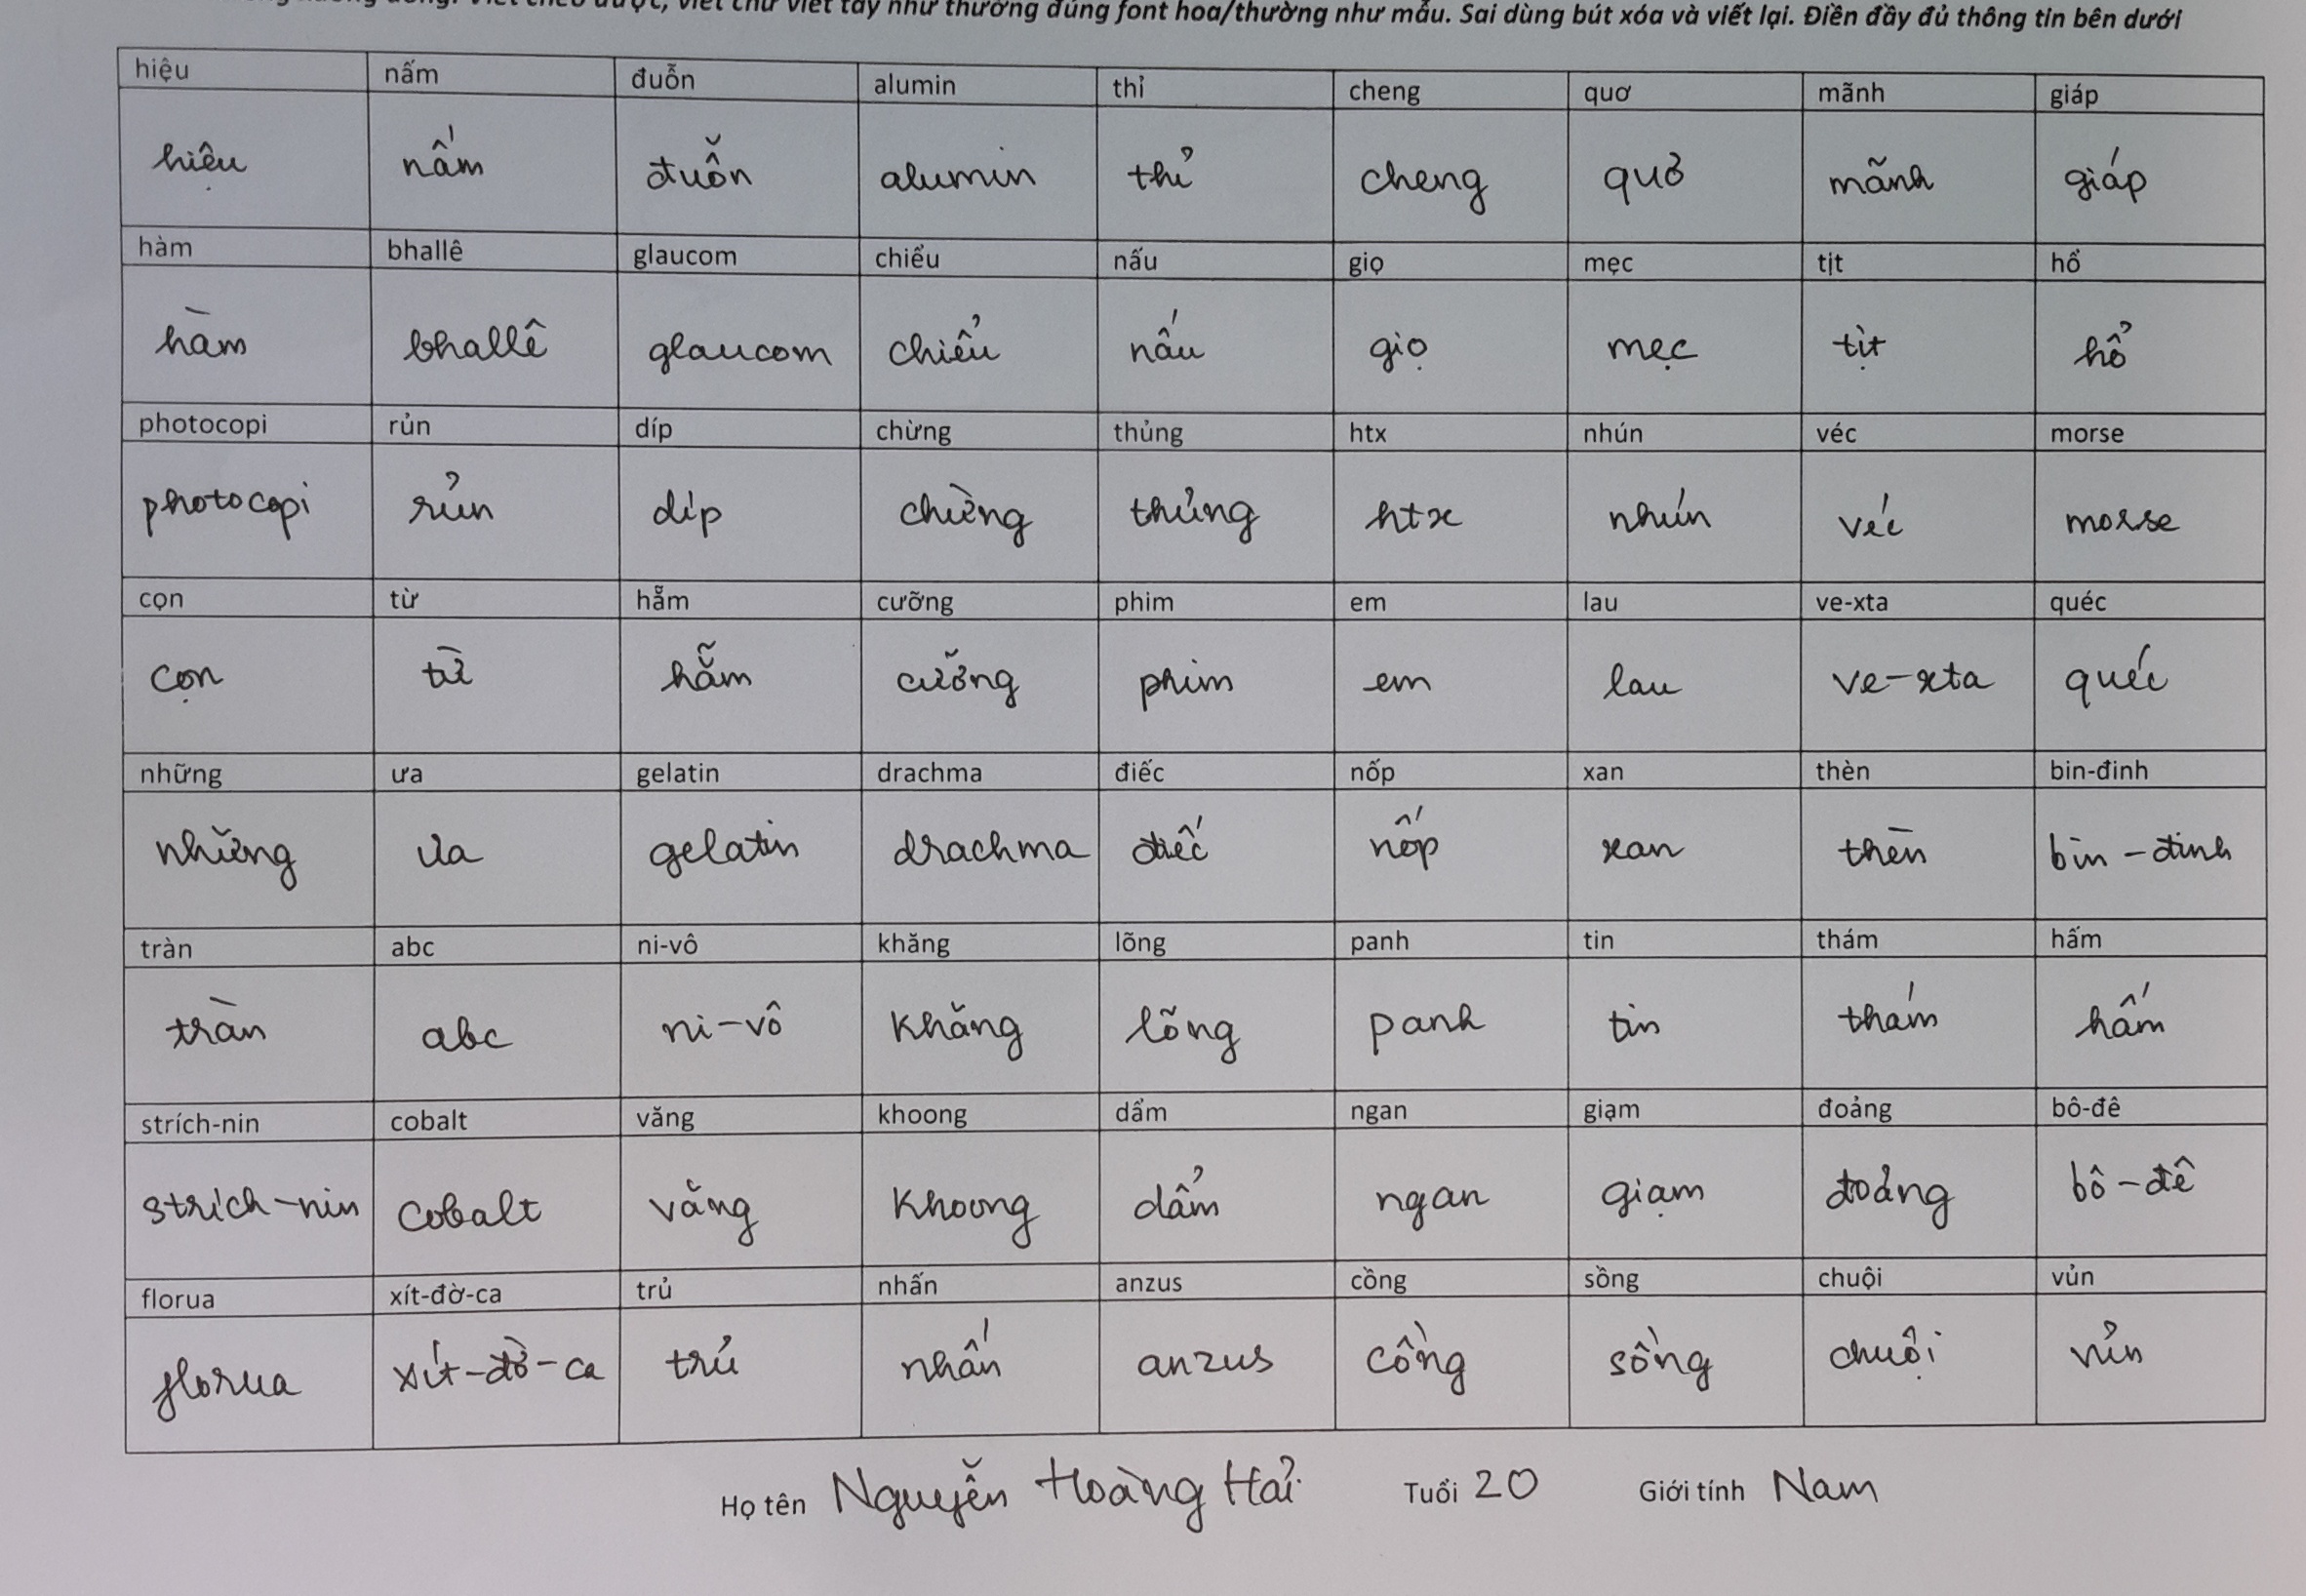 viết chữ viết tay như thường đúng font hoa/thường như mẫu. Sai dùng bút xóa và viết lại. Điền đầy đủ thông tin bên dưới
hiệu nấm đuỗn alumin thỉ cheng quơ mãnh giáp
hiệu nấm đuỗn alumin thỉ cheng quơ mãnh giáp
hàm bhallê glaucom chiểu nấu giọ mẹc tịt hổ
hàm bhallê glaucom chiểu nấu giọ mẹc tịt hổ
photocopi rủn díp chừng thủng htx nhún véc morse
photocopi rủn díp chừng thủng htx nhún véc morse
cọn từ hẵm cưỡng phim em lau ve-xta quéc
cọn từ hẵm cưỡng phim em lau ve-xta quéc
những ưa gelatin drachma điếc nốp xan thèn bin-đinh
những ưa gelatin drachma điếc nốp xan thèn bin-đinh
tràn abc ni-vô khăng lõng panh tin thám hấm
tràn abc ni-vô khăng lõng panh tin thám hấm
strích-nin cobalt văng khoong dẩm ngan giạm đoảng bô-đê
strích-nin cobalt văng khoong dẩm ngan giạm đoảng bô-đê
florua xít-đờ-ca trủ nhấn anzus cồng sồng chuội vủn
florua xít-đờ-ca trủ nhấn anzus cồng sồng chuội vủn
Họ tên Nguyễn Hoàng Hải Tuổi 20 Giới tính Nam